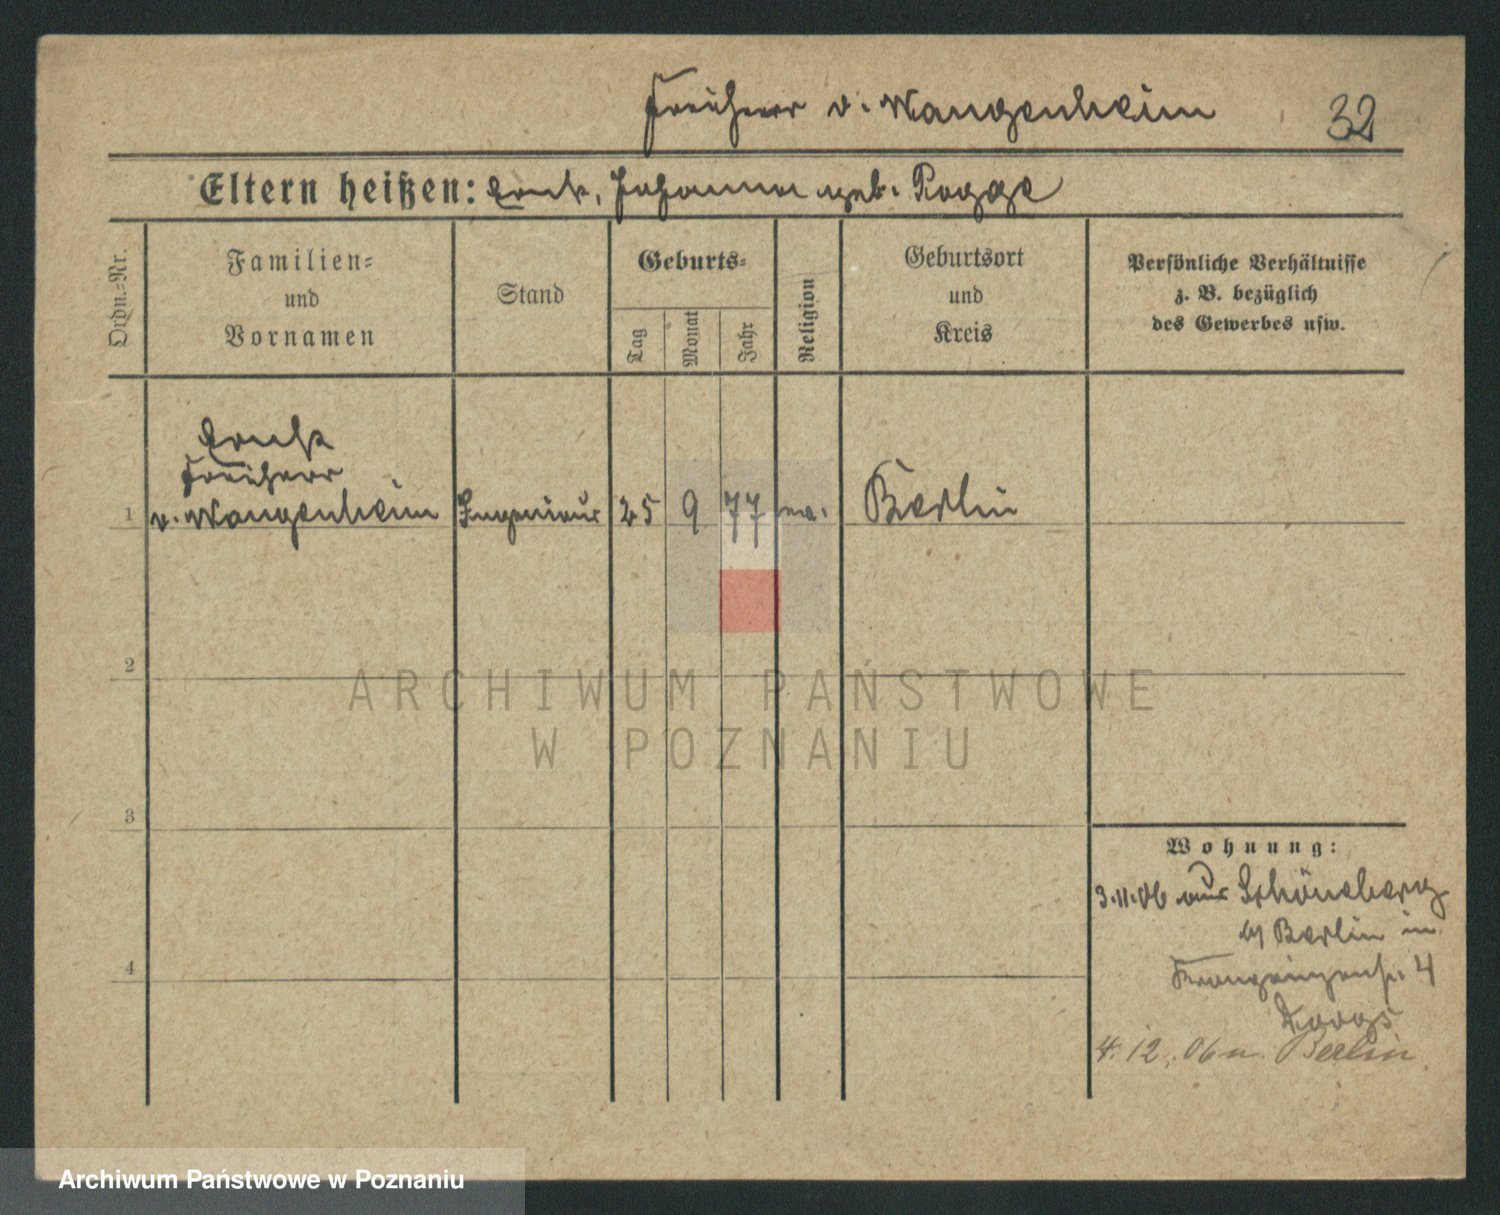 Freiherr v. Wangenheim
32
Eltern heißen: Ernst, Johanna geb. Rogge
Ordn.-Nr.
Familien-
und
Vornamen
Stand
Geburts-
Tag
Monat
Jahr
Religion
Geburtsort
und
Kreis
Persönliche Verhältnisse
z. B. bezüglich
des Gewerbes usw.
Ernst
Freiherr
1 v. Wangenheim Ingenieur 25 9 77 ev. Berlin
2
ARCHIWUM PAŃSTWOWE
W POZNANIU
3
Wohnung:
3.11.06 aus Schöneberg
b/ Berlin in
Kronprinzenstr. 4
4
4.12.06 n. Berlin
Archiwum Państwowe w Poznaniu